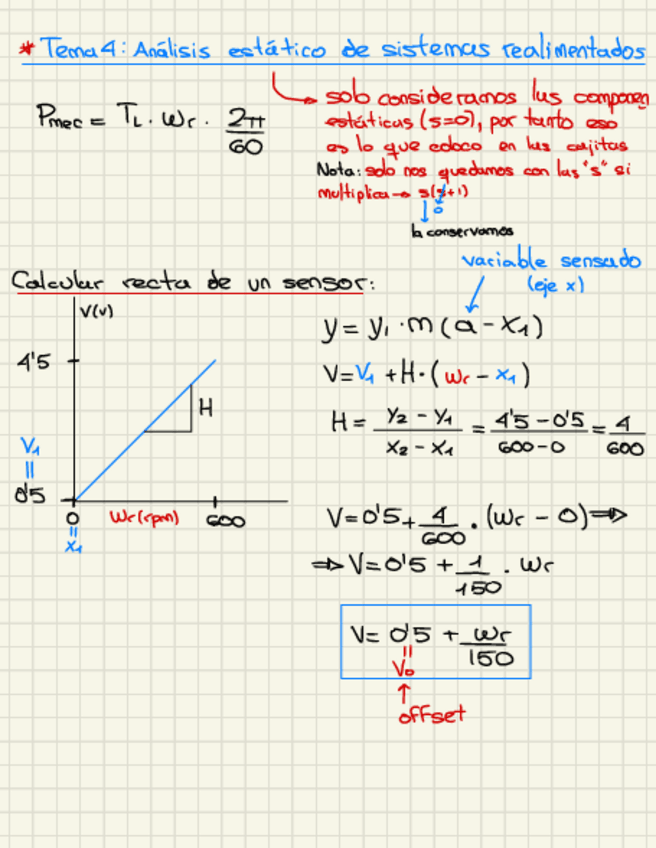 * Tema 4: Análisis estático de sistemas realimentados
Pmec = TL · ωr · 2π/60
→ solo consideramos las componen
estáticas (s=0), por tanto eso
es lo que coloco en las cajitas
Nota: solo nos quedamos con las "s" si
multiplica → s(s+1)
0
la conservamos
Calcular recta de un sensor:
variable sensado
(eje x)
V(v)
4'5
H
V1
=
0'5
0
Wr(rpm)
600
=
x1
y = y1 · m (a - x1)
V = V1 + H · (ωr - x1)
H = y2 - y1 / x2 - x1 = 4'5 - 0'5 / 600 - 0 = 4/600
V = 0'5 + 4/600 · (ωr - 0) ⇒
⇒ V = 0'5 + 1/150 · ωr
V = 0'5 + ωr/150
=
V0
↑
offset